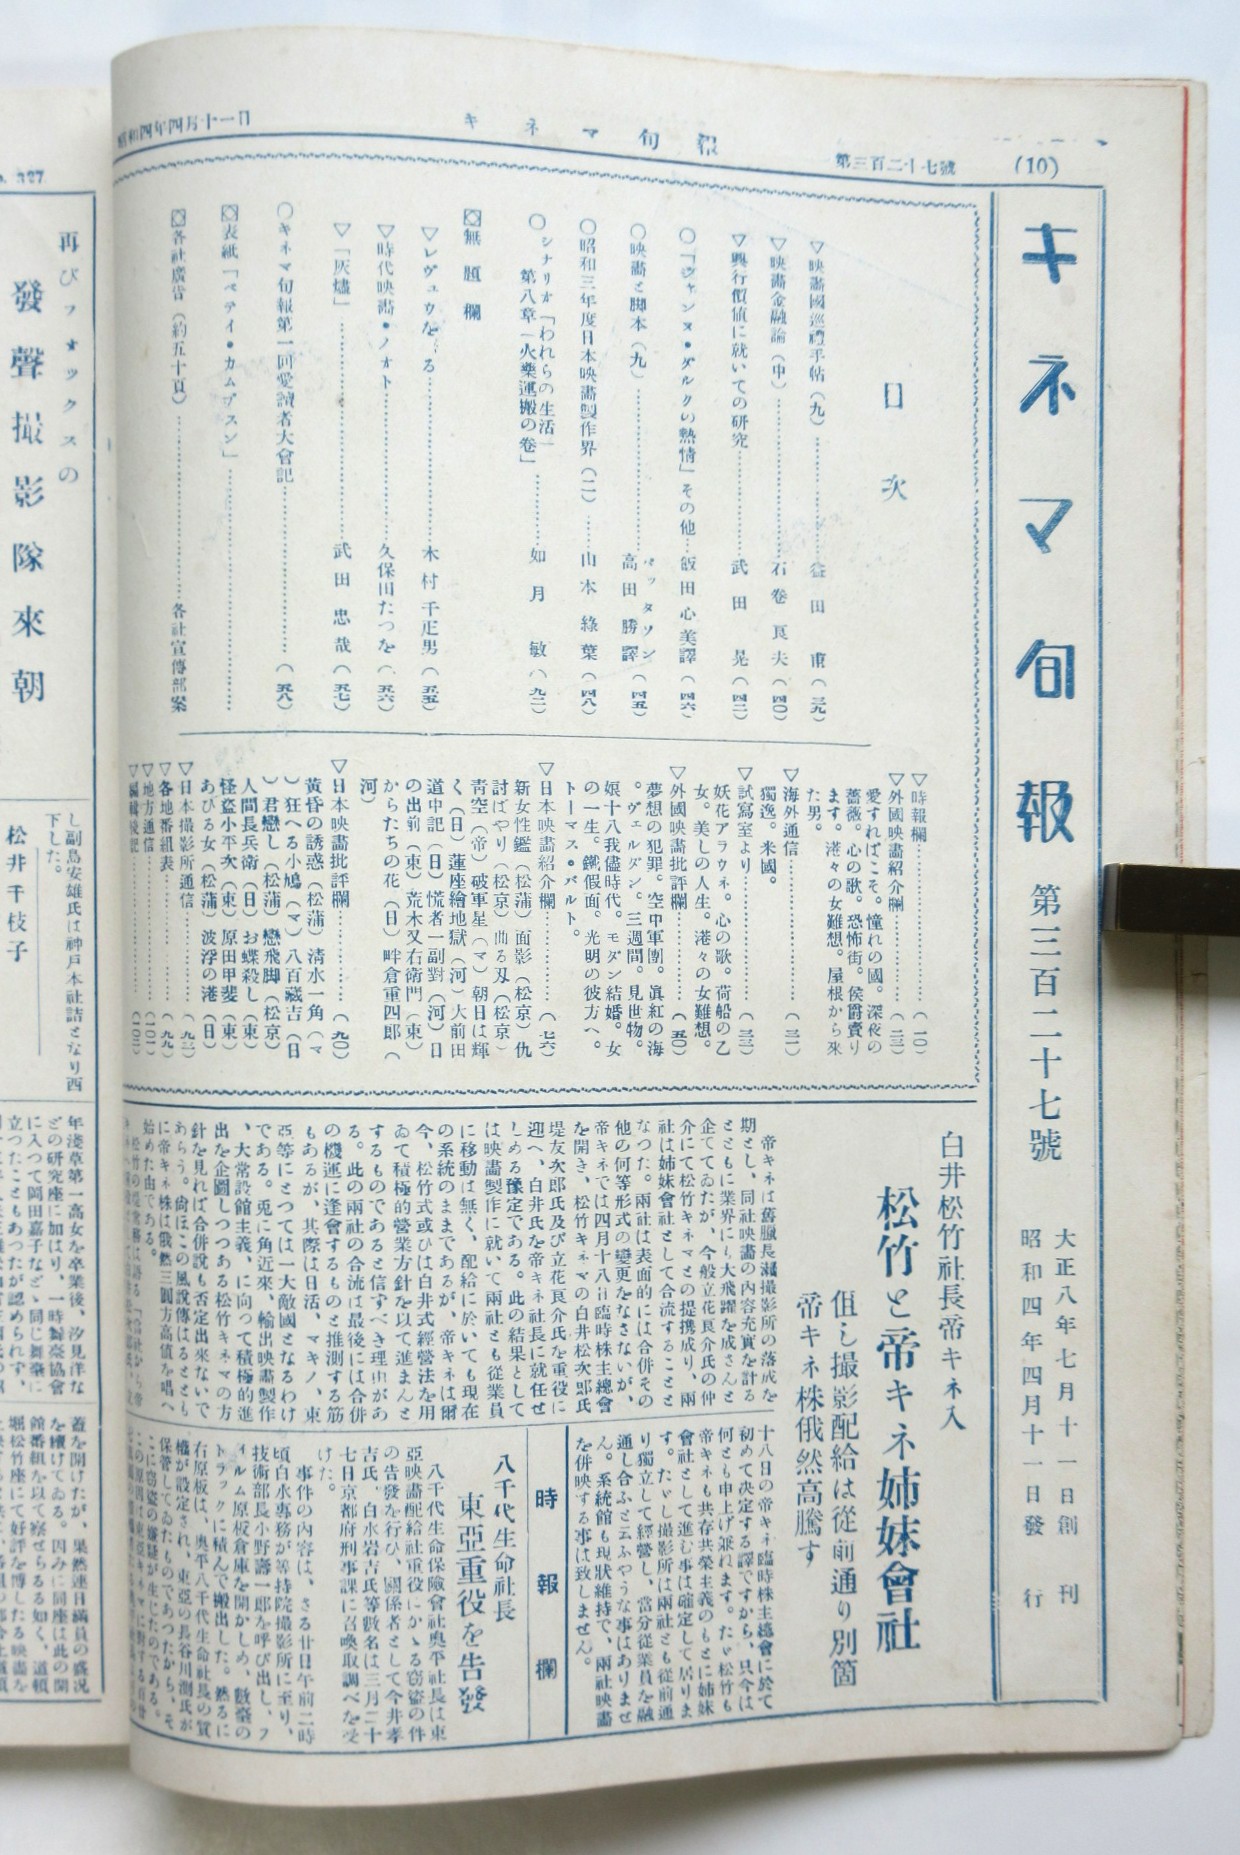 昭和四年四月十一日
キネマ旬報
第三百二十七號
(10)
キネマ旬報
第三百二十七號
大正八年七月十一日創刊
昭和四年四月十一日發行
目次
▽映畵國巡禮手帖(九)………益田甫(三九)
▽映畵金融論(中)………石卷良夫(四〇)
▽興行價値に就いての研究………武田晃(四二)
〇「ヂャンヌ・ダルクの熱情」その他…飯田心美譯(四六)
〇映畵と脚本(九)………パッタソン 高田勝譯(四五)
〇昭和三年度日本映畵製作界(二)……山本綠葉(四八)
〇シナリオ「われらの生活」
第八章「火藥運搬の卷」………如月敏(九二)
無題欄
▽レヴュウを る………木村千疋男(五五)
▽時代映畵・ノオト………久保田たつを(五六)
▽「灰燼」………武田忠哉(五七)
〇キネマ旬報第一回愛讀者大會記………(五八)
表紙「ベテイ・カムプスン」………
各社廣吿(約五十頁)………各社宣傳部案
▽時報欄………(一〇)
▽外國映畵紹介欄………(二三)
愛すればこそ。憧れの國。深夜の
薔薇。心の歌。恐怖街。侯爵賣り
ます。港々の女難想。屋根から來
た男。
▽海外通信………(三一)
獨逸。米國。
▽試寫室より………(三三)
妖花アラウネ。心の歌。荷船の乙
女。美しの人生。港々の女難想。
▽外國映畵批評欄………(五〇)
夢想の犯罪。空中軍團。眞紅の海
。ヴェルダン。三週間。見世物。
娘十八我儘時代。モダン結婚。女
の一生。鐵假面。光明の彼方へ。
トーマス・バルト。
▽日本映畵紹介欄………(七六)
新女性鑑(松蒲)面影(松京)仇
討ばやり(松京)曲る刄(松京)
靑空(帝)破軍星(マ)朝日は輝
く(日)蓮座繪地獄(河)大前田
道中記(日)慌者一副對(河)日
の出前(東)荒木又右衛門(東)
からたちの花(日)畔倉重四郎(
河)
▽日本映畵批評欄………(九〇)
黃昏の誘惑(松蒲)淸水一角(マ
)狂へる小鳩(マ)八百藏吉(日
)君戀し(松蒲)戀飛脚(松京)
人間長兵衛(日)お蝶殺し(東)
怪盜小平次(東)原田甲斐(東)
あびる女(松蒲)波浮の港(日)
▽日本撮影所通信………(九三)
▽各地番組表………(九九)
▽地方通信………(一〇一)
▽編輯後記………(一〇二)
白井松竹社長帝キネ入
松竹と帝キネ姉妹會社
但し撮影配給は從前通り別箇
帝キネ株俄然高騰す
帝キネは舊臘長瀨撮影所の落成を
期とし、同社映畵の內容充實を計る
とともに業界にも大飛躍を成さんと
企てゐたが、今般立花良介氏の仲
介にて松竹キネマとの提携成り、兩
社は姉妹會社として合流することと
なつた。兩社は表面的には合併その
他の何等形式の變更をなさないが、
帝キネでは四月十八日臨時株主總會
を開き、松竹キネマの白井松次郞氏
堤友次郞氏及び立花良介氏を重役に
迎へ、白井氏を帝キネ社長に就任せ
しめる豫定である。此の結果として
は映畵製作に就いて兩社とも從業員
に移動は無く、配給に於いても現在
の系統のままであるが、帝キネは爾
今、松竹式或ひは白井式經營法を用
ゐて積極的營業方針を以て進まんと
するものであると信ずべき理由があ
る。此の兩社の合流は最後には合併
の機運に逢會するものと推測する筋
もあるが、其際は日活、マキノ、東
亞等にとつては一大敵國となるわけ
である。兎に角近來、輸出映畵製作
、大常設館主義、に向つて積極的進
出を企圖しつつある松竹キネマの方
針を見れば合併說も否定出來ないで
あらう。尙ほこの風說傳はるととも
に帝キネ株は俄然三圓方高値を唱へ
始めた由である。
十八日の帝キネ臨時株主總會に於て
初めて決定する譯ですから、只今は
何とも申上げ兼ねます。たゞ松竹も
帝キネも共存共榮主義のもとに姉妹
會社として進む事は確定して居りま
す。たゞし撮影所は兩社とも從前通
り獨立して經營し、當分從業員を融
通し合ふと云ふやうな事はありませ
ん。系統館も現狀維持で、兩社映畵
を併映する事は致しません。
時報欄
八千代生命社長
東亞重役を吿發
八千代生命保險會社奧平社長は東
亞映畵配給社重役にかゝる窃盜の件
の吿發を行ひ、關係者として今井孝
吉氏、白水岩吉氏等數名は三月三十
七日京都府刑事課に召喚取調べを受
けた。
事件の內容は、さる廿日午前二時
頃白水專務が等持院撮影所に至り、
技術部長小野壽一郞を呼び出し、フ
ィルム原板倉庫を開かしめ、數臺の
トラックに積んで搬出した。然るに
右原板は、奧平八千代生命社長の質
權が設定され、東亞の長谷川測氏が
保管してゐたものであつたから、そ
こに窃盜の嫌疑が生じたのである。
再びフォックスの
發聲撮影隊來朝
し副島安雄氏は神戶本社詰となり西
下した。
松井千枝子
年淺草第一高女を卒業後、汐見洋な
どの研究座に加はり、一時舞臺協會
に入つて岡田嘉子などゝ同じ舞臺に
立つたこともあつたが認められず、
蓋を開けたが、果然連日滿員の盛況
を續けてゐる。因みに同座は此の開
館番組を以て察せらるる如く、道頓
堀松竹座にて好評を博したる映畵を